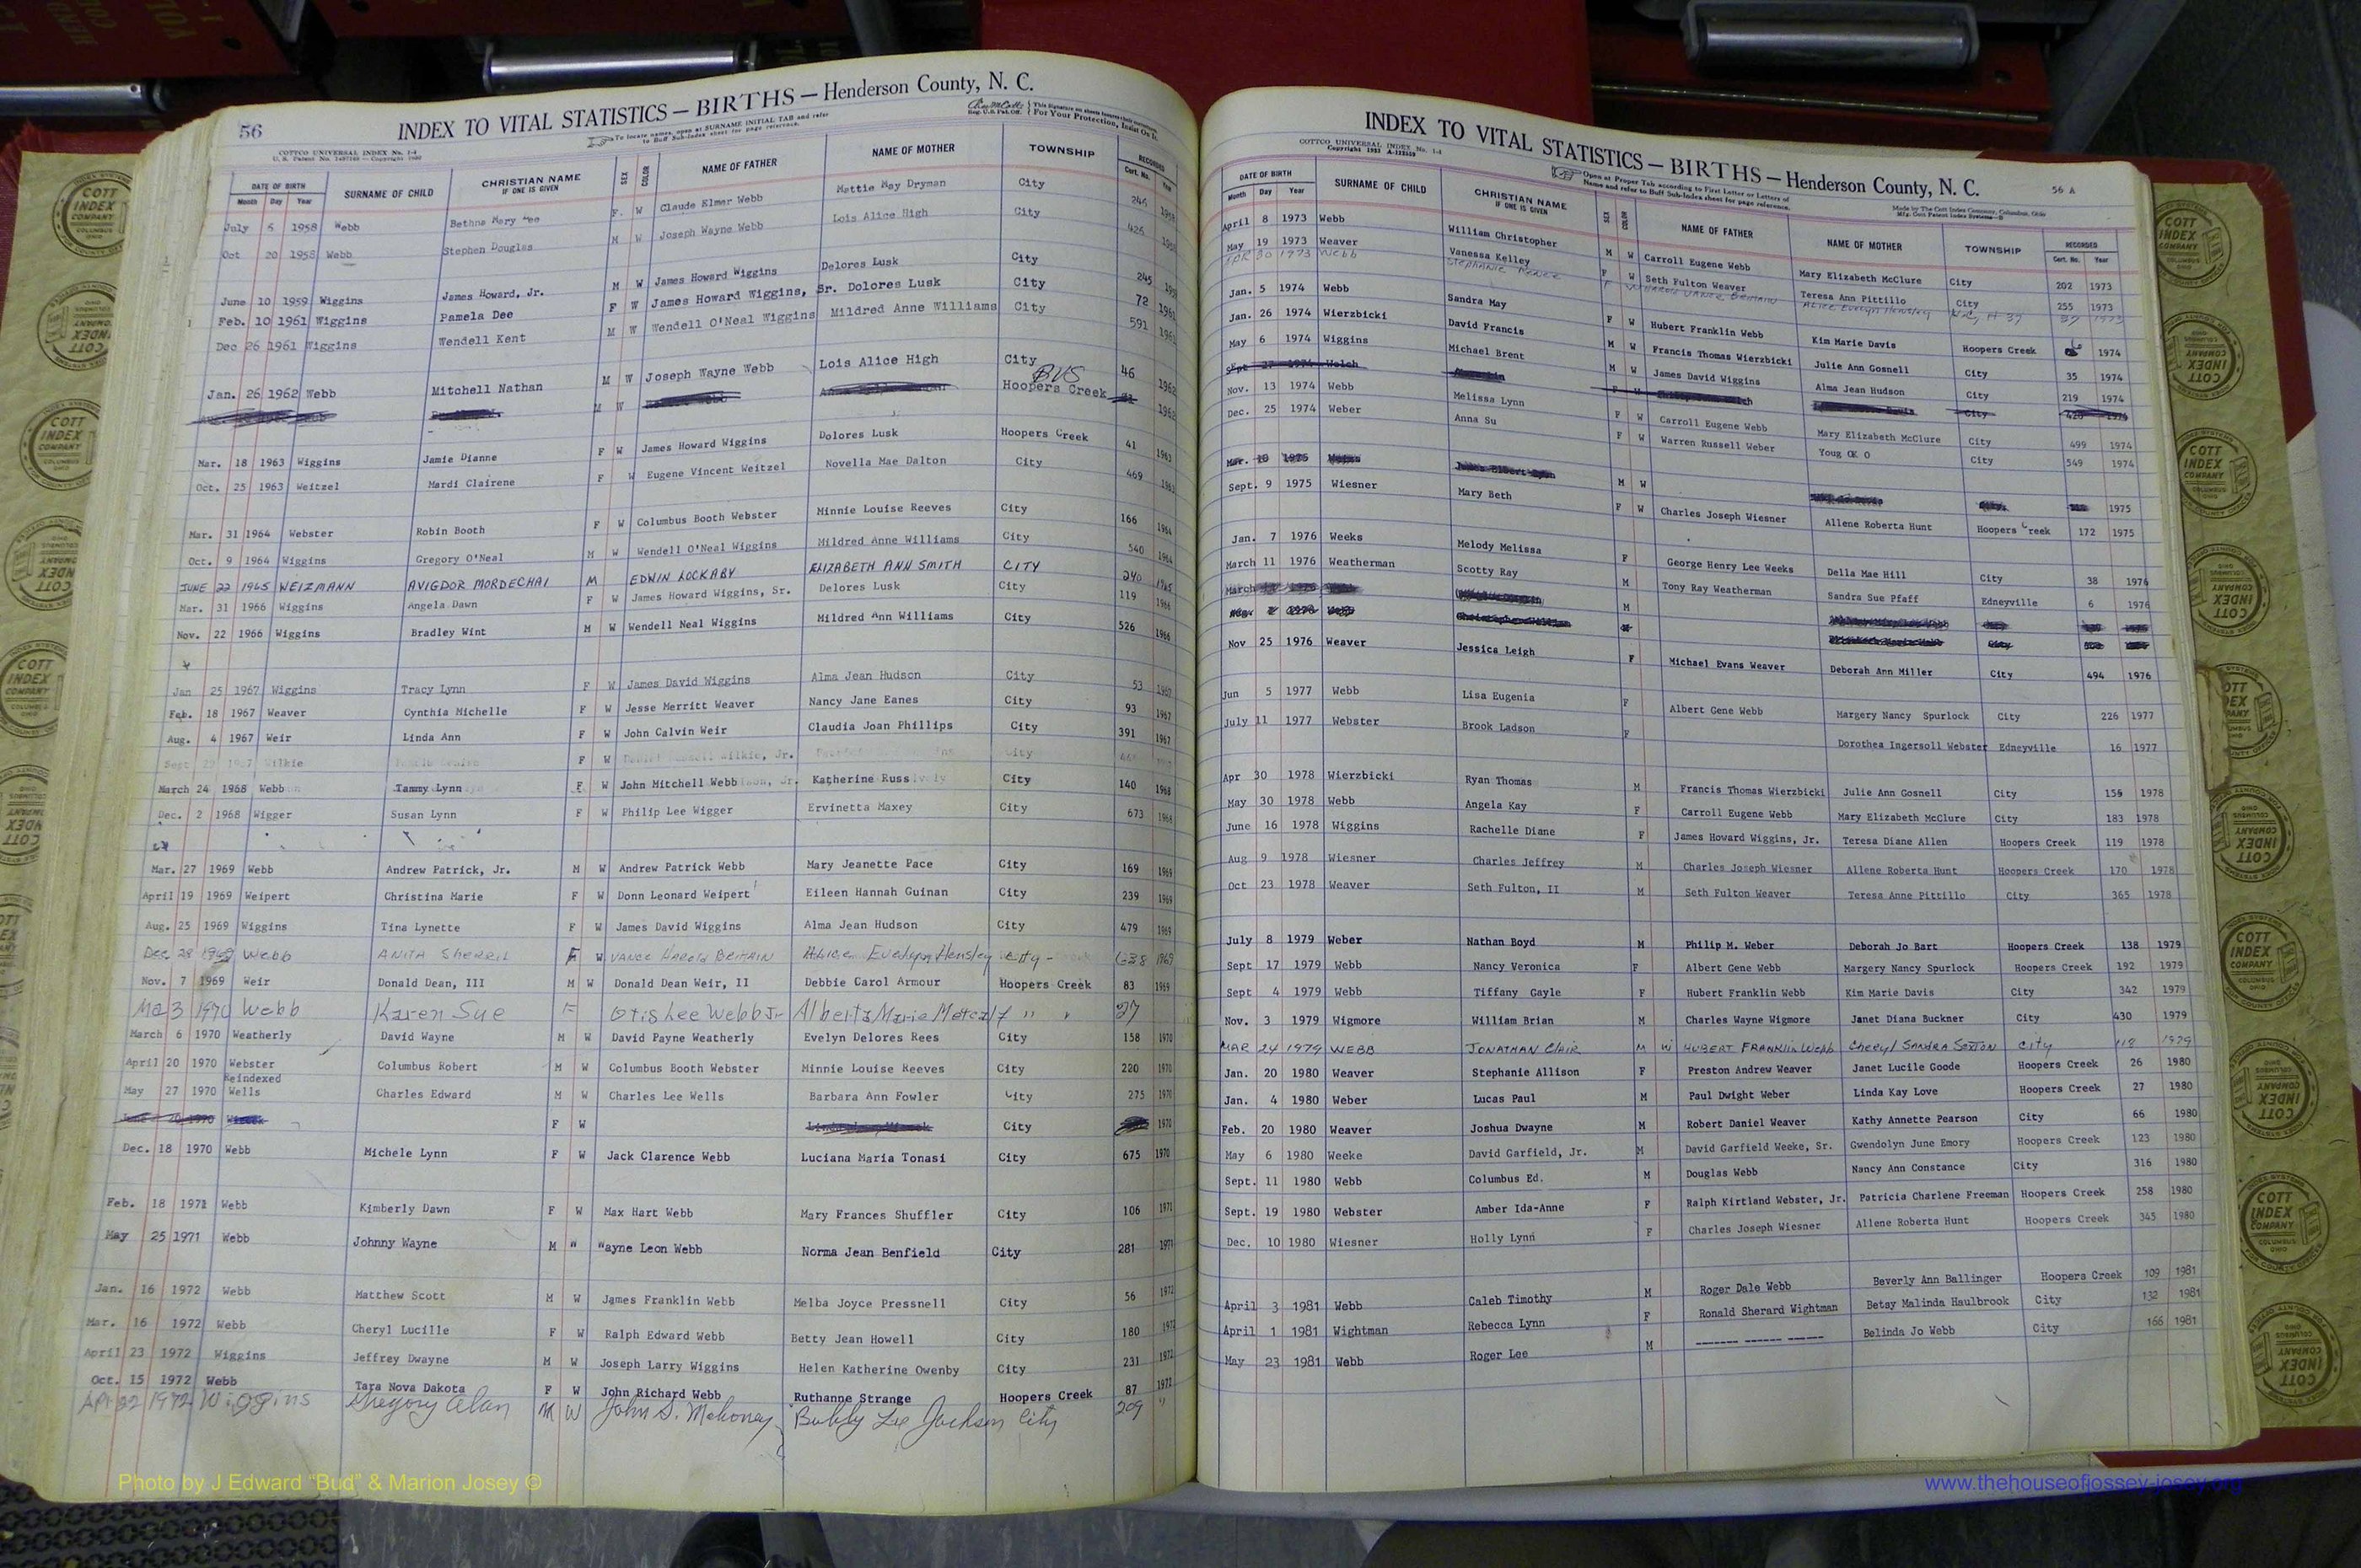 56
INDEX TO VITAL STATISTICS — BIRTHS — Henderson County, N. C.
COTTCO UNIVERSAL INDEX No. 1-4
To locate names, open at SURNAME INITIAL TAB and refer
to Buff Sub-Index sheet for page reference.
For Your Protection, Insist On It.
DATE OF BIRTH SURNAME OF CHILD CHRISTIAN NAME IF ONE IS GIVEN SEX COLOR NAME OF FATHER NAME OF MOTHER TOWNSHIP RECORDED
Month Day Year Cert. No. Year
July 6 1958 Webb Bethna Mary F. W Claude Elmer Webb Mattie May Dryman City 246 1958
Oct 20 1958 Webb Stephen Douglas M W Joseph Wayne Webb Lois Alice High City 426 1958
June 10 1959 Wiggins James Howard, Jr. M W James Howard Wiggins Delores Lusk City 245 1959
Feb. 10 1961 Wiggins Pamela Dee F W James Howard Wiggins, Sr. Dolores Lusk City 72 1961
Dec 26 1961 Wiggins Wendell Kent M W Wendell O'Neal Wiggins Mildred Anne Williams City 591 1961
Jan. 26 1962 Webb Mitchell Nathan M W Joseph Wayne Webb Lois Alice High City 46 1962
M W Hoopers Creek 1962
Mar. 18 1963 Wiggins Jamie Dianne F W James Howard Wiggins Dolores Lusk Hoopers Creek 41 1963
Oct. 25 1963 Weitzel Mardi Clairene F W Eugene Vincent Weitzel Novella Mae Dalton City 469 1963
Mar. 31 1964 Webster Robin Booth F W Columbus Booth Webster Minnie Louise Reeves City 166 1964
Oct. 9 1964 Wiggins Gregory O'Neal M W Wendell O'Neal Wiggins Mildred Anne Williams City 540 1964
JUNE 22 1965 WEIZMANN AVIGDOR MORDECHAI M EDWIN LOCKABY ELIZABETH ANN SMITH CITY 240 1965
Mar. 31 1966 Wiggins Angela Dawn F W James Howard Wiggins, Sr. Delores Lusk City 119 1966
Nov. 22 1966 Wiggins Bradley Wint M W Wendell Neal Wiggins Mildred Ann Williams City 526 1966
Jan 25 1967 Wiggins Tracy Lynn F W James David Wiggins Alma Jean Hudson City 53 1967
Feb. 18 1967 Weaver Cynthia Michelle F W Jesse Merritt Weaver Nancy Jane Eanes City 93 1967
Aug. 4 1967 Weir Linda Ann F W John Calvin Weir Claudia Joan Phillips City 391 1967
Sept Wilkie F W Wilkie, Jr. City
March 24 1968 Webb Tammy Lynn F W John Mitchell Webb Katherine Russ City 140 1968
Dec. 2 1968 Wigger Susan Lynn F W Philip Lee Wigger Ervinetta Maxey City 673 1968
Mar. 27 1969 Webb Andrew Patrick, Jr. M W Andrew Patrick Webb Mary Jeanette Pace City 169 1969
April 19 1969 Weipert Christina Marie F W Donn Leonard Weipert Eileen Hannah Guinan City 239 1969
Aug. 25 1969 Wiggins Tina Lynette F W James David Wiggins Alma Jean Hudson City 479 1969
Dec 28 1969 Webb ANITA SHERRIL F W VANCE HAROLD BRITAIN Alice Evelyn Hensley City 638 1969
Nov. 7 1969 Weir Donald Dean, III M W Donald Dean Weir, II Debbie Carol Armour Hoopers Creek 83 1969
Ma 3 1970 Webb Karen Sue F Otis Lee Webb Jr Alberta Marie Metcalf " " 27
March 6 1970 Weatherly David Wayne M W David Payne Weatherly Evelyn Delores Rees City 158 1970
April 20 1970 Webster Columbus Robert M W Columbus Booth Webster Minnie Louise Reeves City 220 1970
Reindexed
May 27 1970 Wells Charles Edward M W Charles Lee Wells Barbara Ann Fowler City 275 1970
June 20 1970 F W City 1970
Dec. 18 1970 Webb Michele Lynn F W Jack Clarence Webb Luciana Maria Tonasi City 675 1970
Feb. 18 1971 Webb Kimberly Dawn F W Max Hart Webb Mary Frances Shuffler City 106 1971
May 25 1971 Webb Johnny Wayne M W Wayne Leon Webb Norma Jean Benfield City 281 1971
Jan. 16 1972 Webb Matthew Scott M W James Franklin Webb Melba Joyce Pressnell City 56 1972
Mar. 16 1972 Webb Cheryl Lucille F W Ralph Edward Webb Betty Jean Howell City 180 1972
April 23 1972 Wiggins Jeffrey Dwayne M W Joseph Larry Wiggins Helen Katherine Owenby City 231 1972
Oct. 15 1972 Webb Tara Nova Dakota F W John Richard Webb Ruthanne Strange Hoopers Creek 87 1972
Apr 22 1972 Wiggins Gregory Alan M W John S. Mahoney Bobby Lee Jackson City 209 "
INDEX TO VITAL STATISTICS — BIRTHS — Henderson County, N. C.
56 A
COTTCO UNIVERSAL INDEX No. 1-4
Open at Proper Tab according to First Letter or Letters of
Name and refer to Buff Sub-Index sheet for page reference.
Made by The Cott Index Company, Columbus, Ohio
DATE OF BIRTH SURNAME OF CHILD CHRISTIAN NAME IF ONE IS GIVEN SEX COLOR NAME OF FATHER NAME OF MOTHER TOWNSHIP RECORDED
Month Day Year Cert. No. Year
April 8 1973 Webb William Christopher M W Carroll Eugene Webb Mary Elizabeth McClure City 202 1973
May 19 1973 Weaver Vanessa Kelley F W Seth Fulton Weaver Teresa Ann Pittillo City 255 1973
APR 30 1973 Webb Stephanie Renee F W VANCE BRITAIN ALICE Evelyn Hensley 37 1973
Jan. 5 1974 Webb Sandra May F W Hubert Franklin Webb Kim Marie Davis Hoopers Creek 1974
Jan. 26 1974 Wierzbicki David Francis M W Francis Thomas Wierzbicki Julie Ann Gosnell City 35 1974
May 6 1974 Wiggins Michael Brent M W James David Wiggins Alma Jean Hudson City 219 1974
Sept 27 1974 Welch F W City 1974
Nov. 13 1974 Webb Melissa Lynn F W Carroll Eugene Webb Mary Elizabeth McClure City 499 1974
Dec. 25 1974 Weber Anna Su F W Warren Russell Weber Youg OK O City 549 1974
Mar. 1975 M W 1975
Sept. 9 1975 Wiesner Mary Beth F W Charles Joseph Wiesner Allene Roberta Hunt Hoopers Creek 172 1975
Jan. 7 1976 Weeks Melody Melissa F George Henry Lee Weeks Della Mae Hill City 38 1976
March 11 1976 Weatherman Scotty Ray M Tony Ray Weatherman Sandra Sue Pfaff Edneyville 6 1976
March M
Nov 25 1976 Weaver Jessica Leigh F Michael Evans Weaver Deborah Ann Miller City 494 1976
Jun 5 1977 Webb Lisa Eugenia F Albert Gene Webb Margery Nancy Spurlock City 226 1977
July 11 1977 Webster Brook Ladson F Dorothea Ingersoll Webster Edneyville 16 1977
Apr 30 1978 Wierzbicki Ryan Thomas M Francis Thomas Wierzbicki Julie Ann Gosnell City 156 1978
May 30 1978 Webb Angela Kay F Carroll Eugene Webb Mary Elizabeth McClure City 183 1978
June 16 1978 Wiggins Rachelle Diane F James Howard Wiggins, Jr. Teresa Diane Allen Hoopers Creek 119 1978
Aug 9 1978 Wiesner Charles Jeffrey M Charles Joseph Wiesner Allene Roberta Hunt Hoopers Creek 170 1978
Oct 23 1978 Weaver Seth Fulton, II M Seth Fulton Weaver Teresa Anne Pittillo City 365 1978
July 8 1979 Weber Nathan Boyd M Philip M. Weber Deborah Jo Bart Hoopers Creek 138 1979
Sept 17 1979 Webb Nancy Veronica F Albert Gene Webb Margery Nancy Spurlock Hoopers Creek 192 1979
Sept 4 1979 Webb Tiffany Gayle F Hubert Franklin Webb Kim Marie Davis City 342 1979
Nov. 3 1979 Wigmore William Brian M Charles Wayne Wigmore Janet Diana Buckner City 430 1979
MAR 24 1979 WEBB JONATHAN CLAIR M W HUBERT FRANKLIN Webb Cheryl SANDRA SEXTON City 118 1979
Jan. 20 1980 Weaver Stephanie Allison F Preston Andrew Weaver Janet Lucile Goode Hoopers Creek 26 1980
Jan. 4 1980 Weber Lucas Paul M Paul Dwight Weber Linda Kay Love Hoopers Creek 27 1980
Feb. 20 1980 Weaver Joshua Dwayne M Robert Daniel Weaver Kathy Annette Pearson City 66 1980
May 6 1980 Weeke David Garfield, Jr. M David Garfield Weeke, Sr. Gwendolyn June Emory Hoopers Creek 123 1980
Sept. 11 1980 Webb Columbus Ed. M Douglas Webb Nancy Ann Constance City 316 1980
Sept. 19 1980 Webster Amber Ida-Anne F Ralph Kirtland Webster, Jr. Patricia Charlene Freeman Hoopers Creek 258 1980
Dec. 10 1980 Wiesner Holly Lynn F Charles Joseph Wiesner Allene Roberta Hunt Hoopers Creek 345 1980
April 3 1981 Webb Caleb Timothy M Roger Dale Webb Beverly Ann Ballinger Hoopers Creek 109 1981
April 1 1981 Wightman Rebecca Lynn F Ronald Sherard Wightman Betsy Malinda Haulbrook City 132 1981
May 23 1981 Webb Roger Lee M ------- ------ ----- Belinda Jo Webb City 166 1981
Photo by J Edward “Bud” & Marion Josey ©
www.thehouseofjossey-josey.org